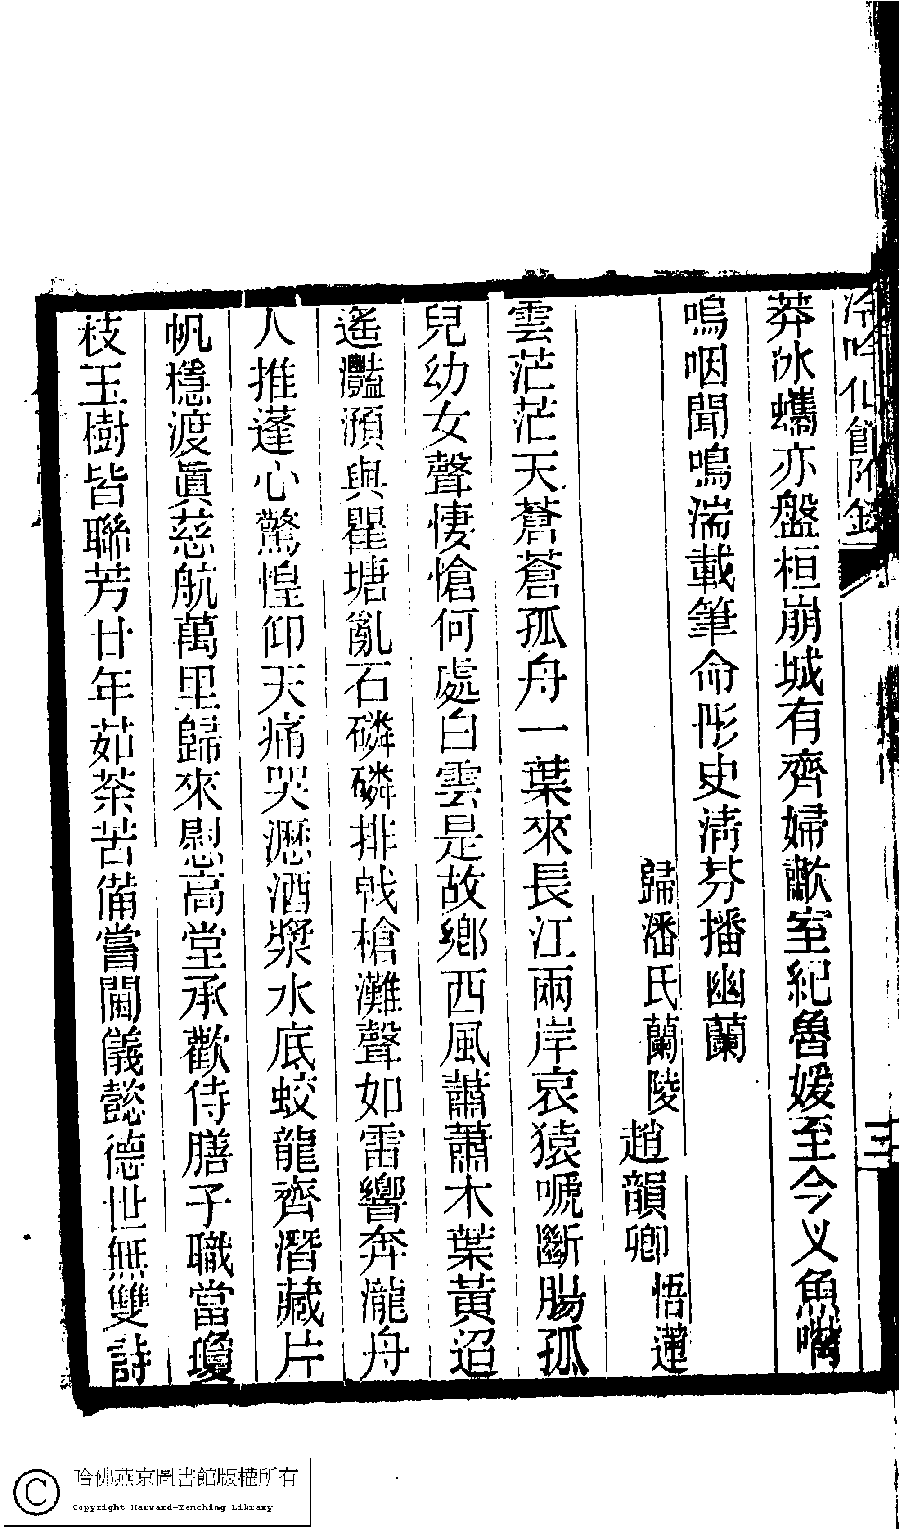 冷吟仙館附錄
三
莽冰蠵亦盤桓崩城有齊婦歗室紀魯媛至今义魚嘴
嗚咽聞鳴湍載筆命彤史淸芬播幽蘭
歸潘氏蘭陵趙韻卿悟蓮
雲茫茫天蒼蒼孤舟一葉來長江兩岸哀猿嗁斷腸孤
兒幼女聲悽愴何處白雲是故鄉西風蕭蕭木葉黃迢
遙灩澦與瞿塘亂石磷磷排戟槍灘聲如雷響奔瀧舟
人推蓬心驚惶仰天痛哭瀝酒漿水底蛟龍齊潛藏片
帆穩渡眞慈航萬里歸來慰高堂承歡侍膳子職當瓊
枝玉樹皆聯芳廿年茹荼苦備嘗閫儀懿德世無雙詩
哈佛燕京圖書館版權所有
Copyright Harvard-Yenching Library